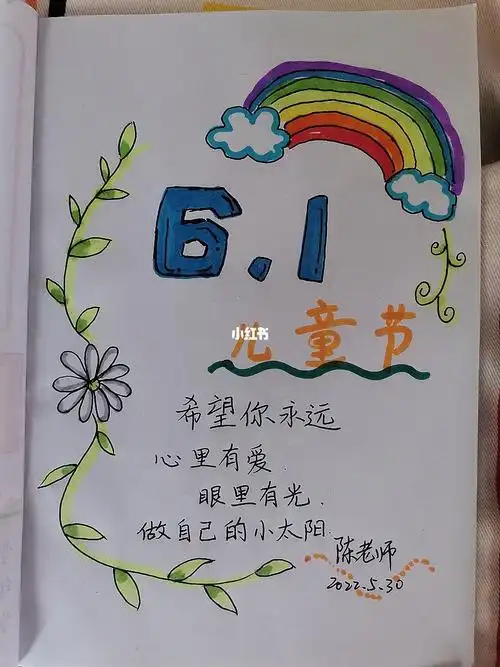 6.1
儿童节
小红书
希望你永远
心里有爱.
眼里有光.
做自己的小太阳.
陈老师
2022.5.30